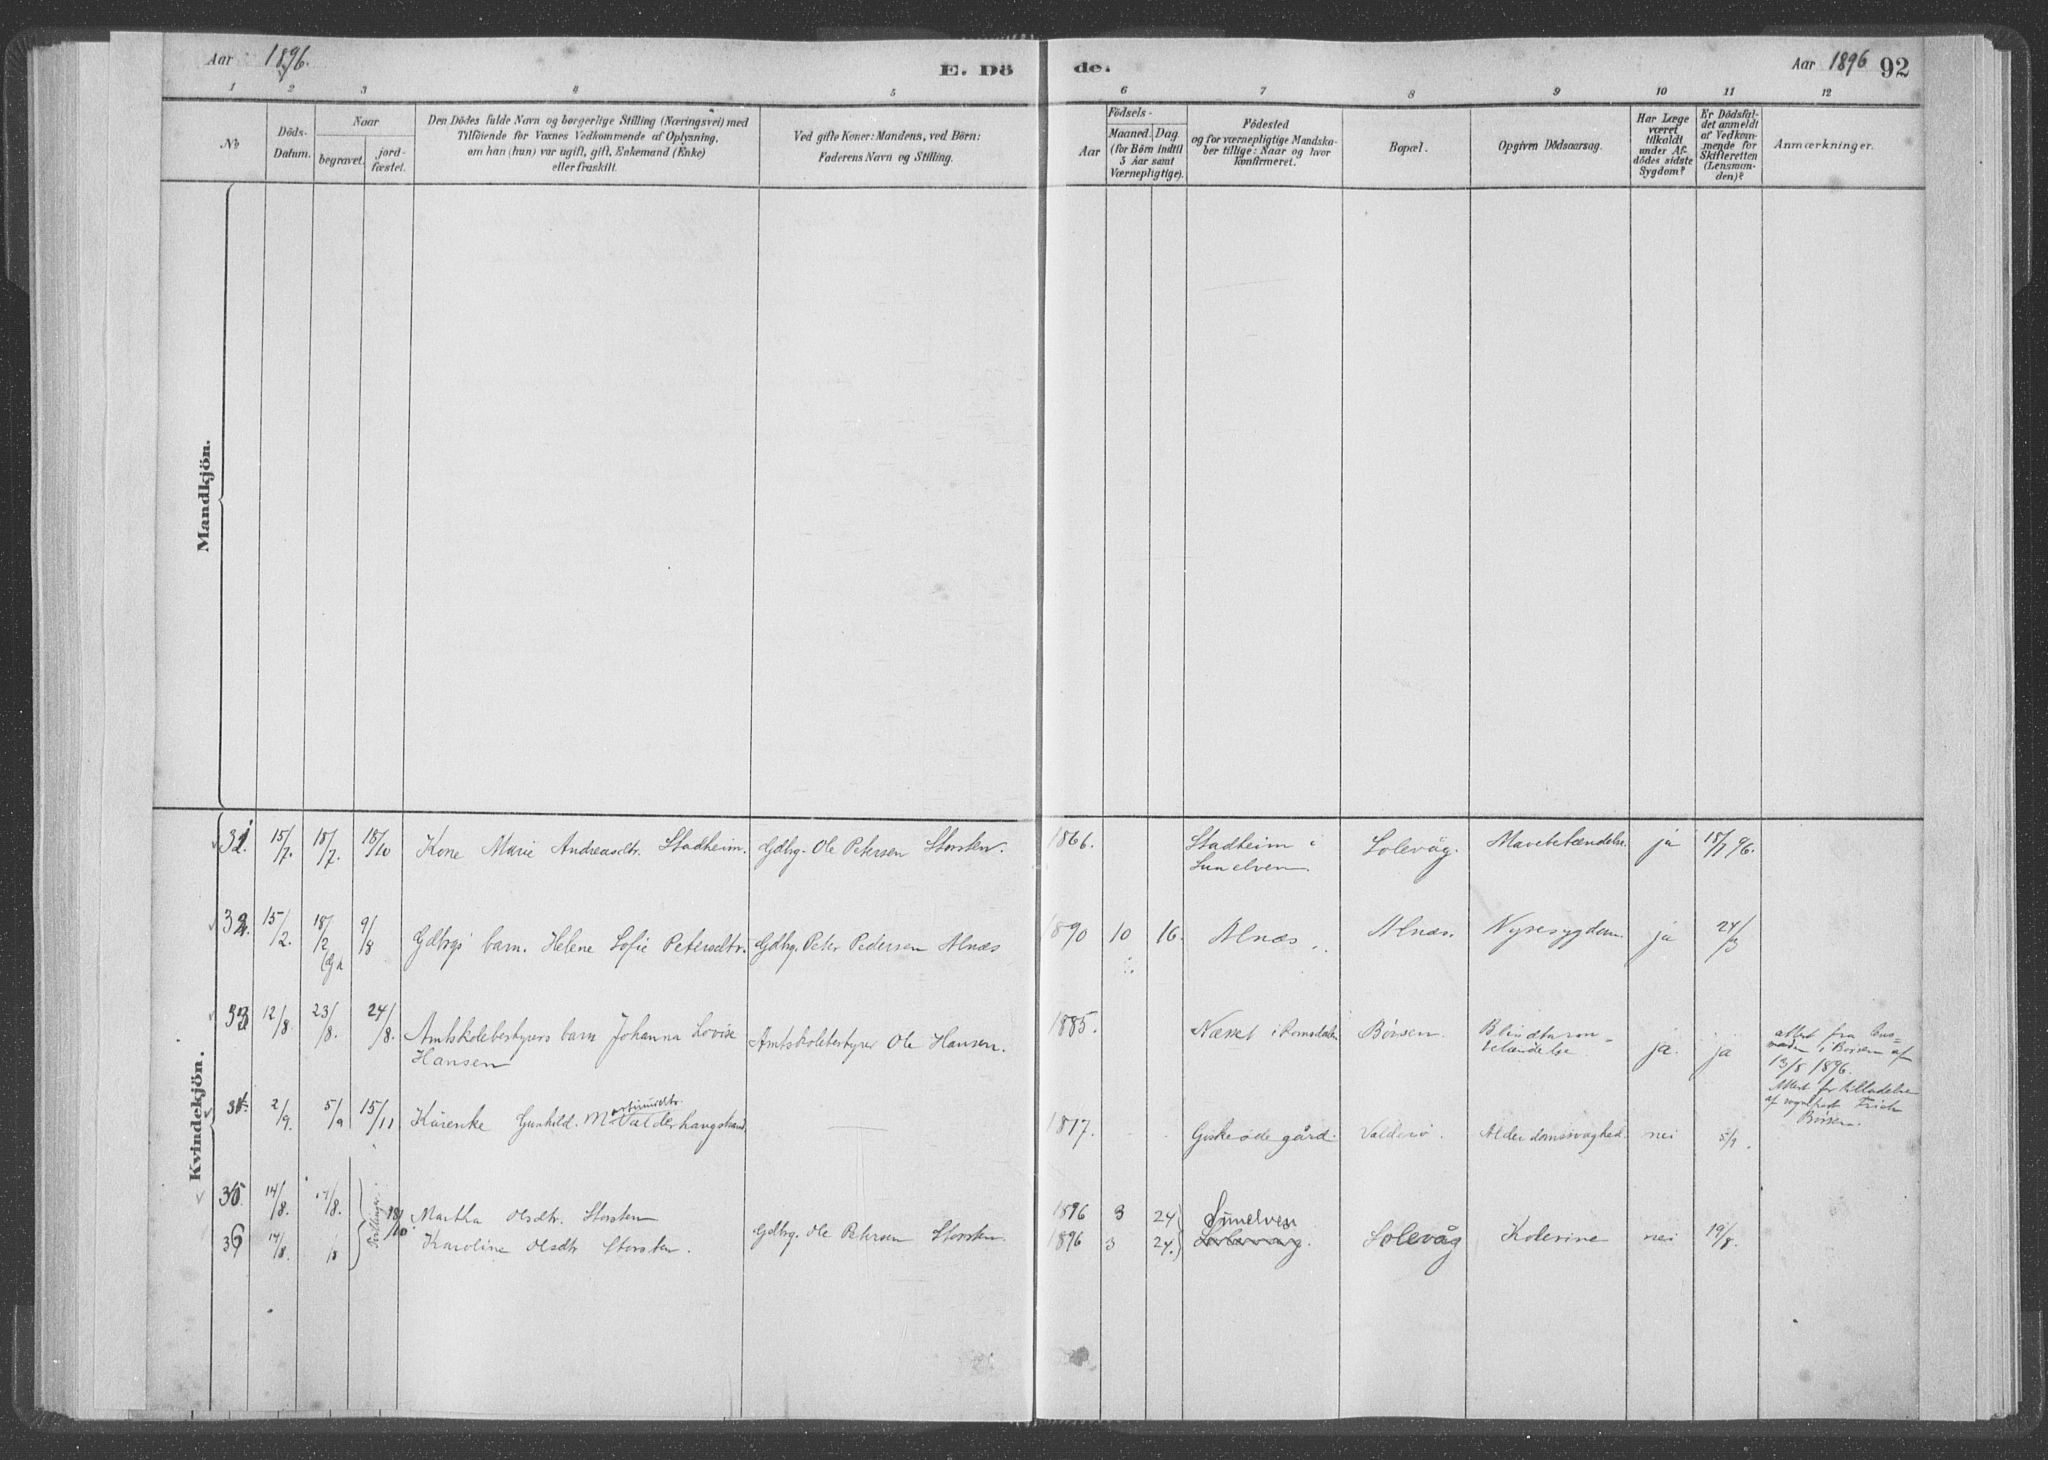 Aar 1896.
E. Dö
de.
Aar 1896 92
1 2 3 4 5 6 7 8 9 10 11 12
No
Döds-
Datum.
Naar
begravet.
jord-
fæstet.
Den Dödes fulde Navn og borgerlige Stilling (Næringsvei) med
Tilföiende for Voxnes Vedkommende af Oplysning,
om han (hun) var ugift, gift, Enkemand (Enke)
eller fraskilt.
Ved gifte Koner: Mandens, ved Börn:
Faderens Navn og Stilling.
Födsels-
Aar
Maaned. Dag.
(for Börn indtil
5 Aar samt
Værnepligtige).
Födested
og for værnepligtige Mandska-
ber tillige: Naar og hvor
konfirmeret.
Bopæl.
Opgiven Dödsaarsag.
Har Læge
været
tilkaldt
under Af-
dödes sidste
Sygdom?
Er Dödsfal-
det anmeldt
af Vedkom-
mende for
Skifteretten
(Lensman-
den)?
Anmærkninger.
Mandkjön.
Kvindekjön.
31. 15/7. 18/7. 18/10 Kone Marie Andreasdtr. Stadheim. Gdbrg. Ole Petersen Storsten. 1866. Stadheim i Sunelven. Solevåg. Mavebetændelse. ja 18/7 96.
32. 15/2. 18/2 9/8 Gdbrgs barn. Helene Sofie Petersdtr. Gdbrg. Peter Pedersen Alnæs 1890 10 16. Alnæs. Alnæs. Nyresygdom. ja 24/3
33. 12/8. 23/8. 24/8. Amtskolebestyrers barn Johanna Lovise Hansen Amtskolebestyrer Ole Hansen. 1885. Næsset i Romsdalen Børsen. Blindtarm- betændelse ja. ja
attest fra
i Børsen af
13/8 1896.
Attest for tilladelse
af
Børsen.
34. 2/9. 5/9 15/11 Karenke Gunhild. Martinusdtr. Valderhaugstrand 1817. Giskeødegård. Valderø. Alderdomssvaghed. nei 5/9.
35. 14/8. 17/8. Tvillinger. 18/10. Martha Olsdtr. Storsten 1896 3 24 Sunelven
36 14/8. /8 Karoline Olsdtr Storsten. Gdbrg. Ole Petersen Storsten. 1896 3 24. Solevaag. Solevåg Kolerine nei 19/8.